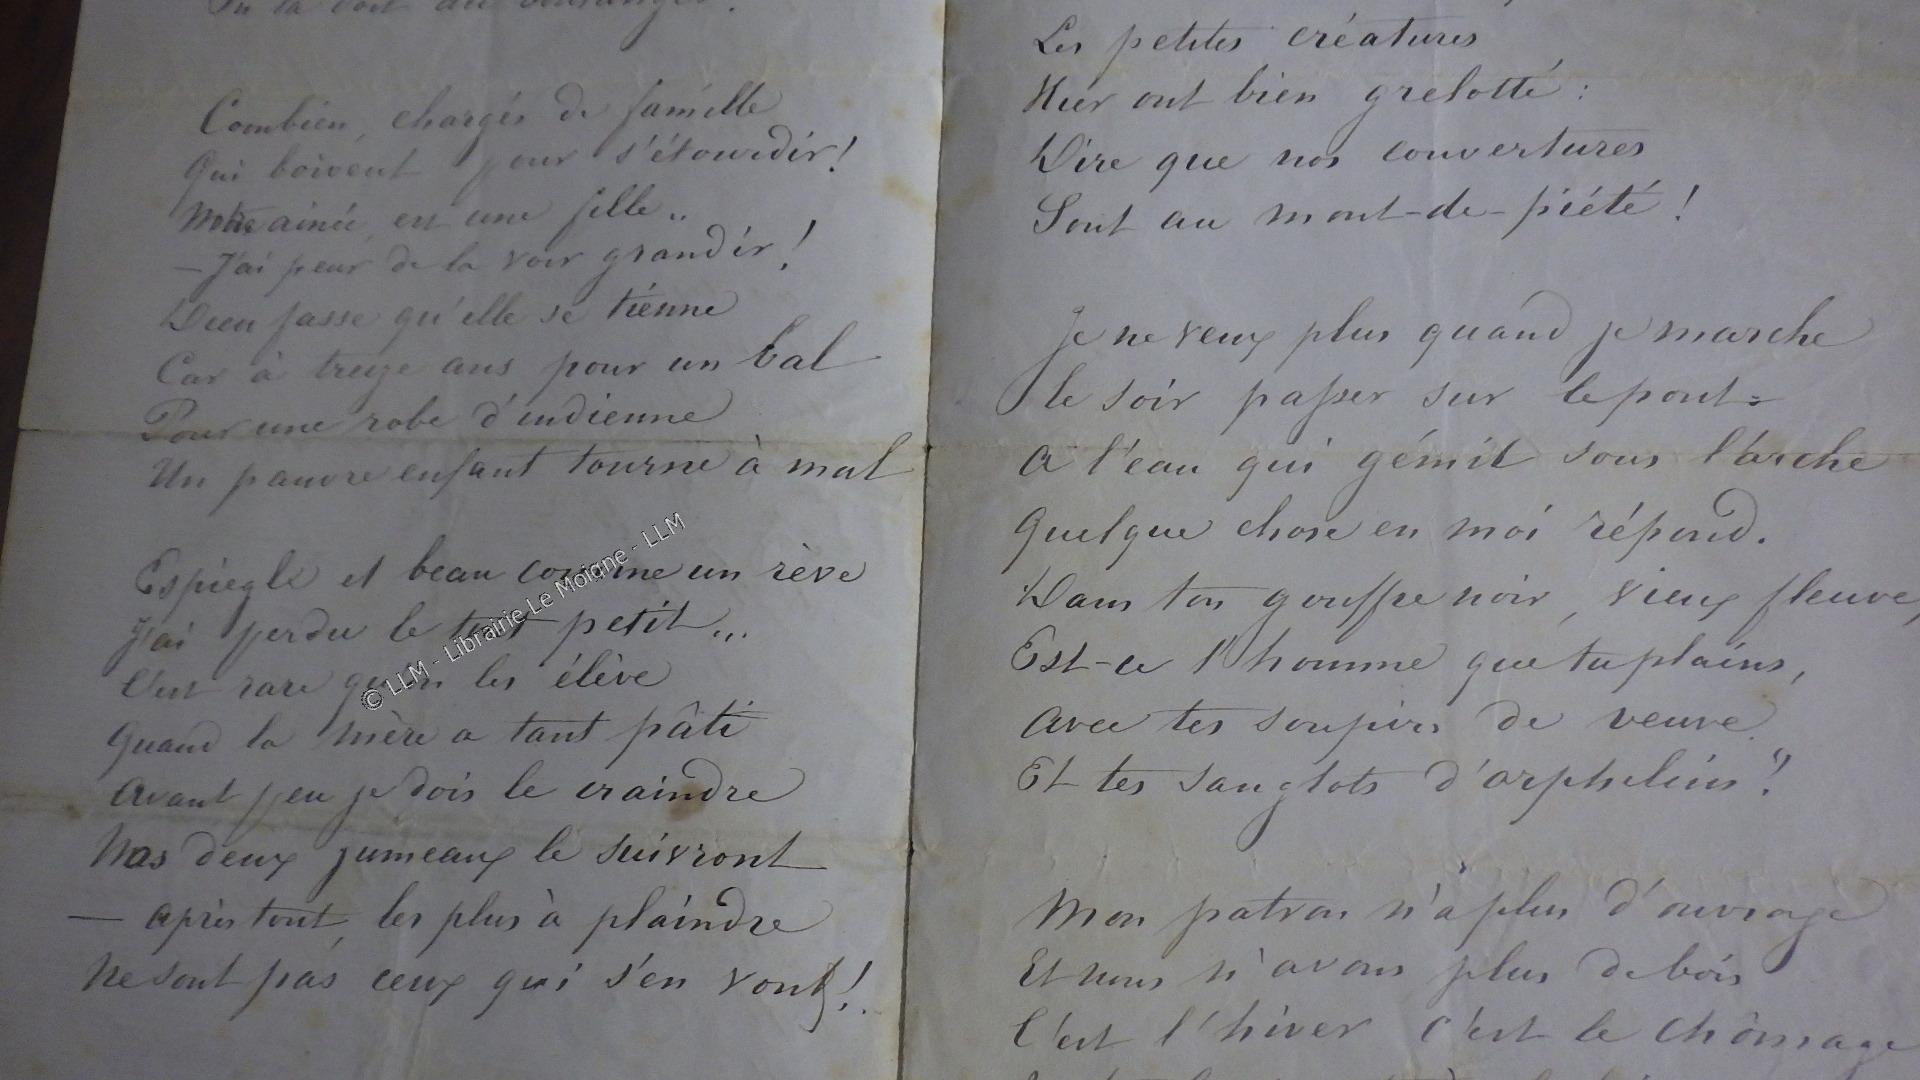 On la doit au boulanger.
Combien, chargés de famille
Qui boivent pour s'étourdir!
Notre ainée, est une fille..
— J'ai peur de la voir grandir!
Dieu fasse qu'elle se tienne
Car à treize ans pour un bal
Pour une robe d'indienne
Un pauvre enfant tourne à mal
Espiegle et beau comme un rève
J'ai perdu le tout petit...
C'est rare qu'on les élève
Quand la mère a tant pâti
Avant peu je dois le craindre
Nos deux jumeaux le suivront
— après tout, les plus à plaindre
Ne sont pas ceux qui s'en vont!
© LLM - Librairie Le Moiane - LLM
Les petites créatures
Hier ont bien grelotté:
Dire que nos couvertures
Sont au mont-de-piété!
Je ne veux plus quand je marche
le soir passer sur le pont=
A l'eau qui gémit sous l'arche
Quelque chose en moi répond.
Dans ton gouffre noir, vieux fleuve,
Est-ce l'homme que tu plains,
avec tes soupirs de veuve
Et tes sanglots d'orphelins?
Mon patron n'a plus d'ouvrage
Et nous n'avons plus de bois
C'est l'hiver c'est le chômage